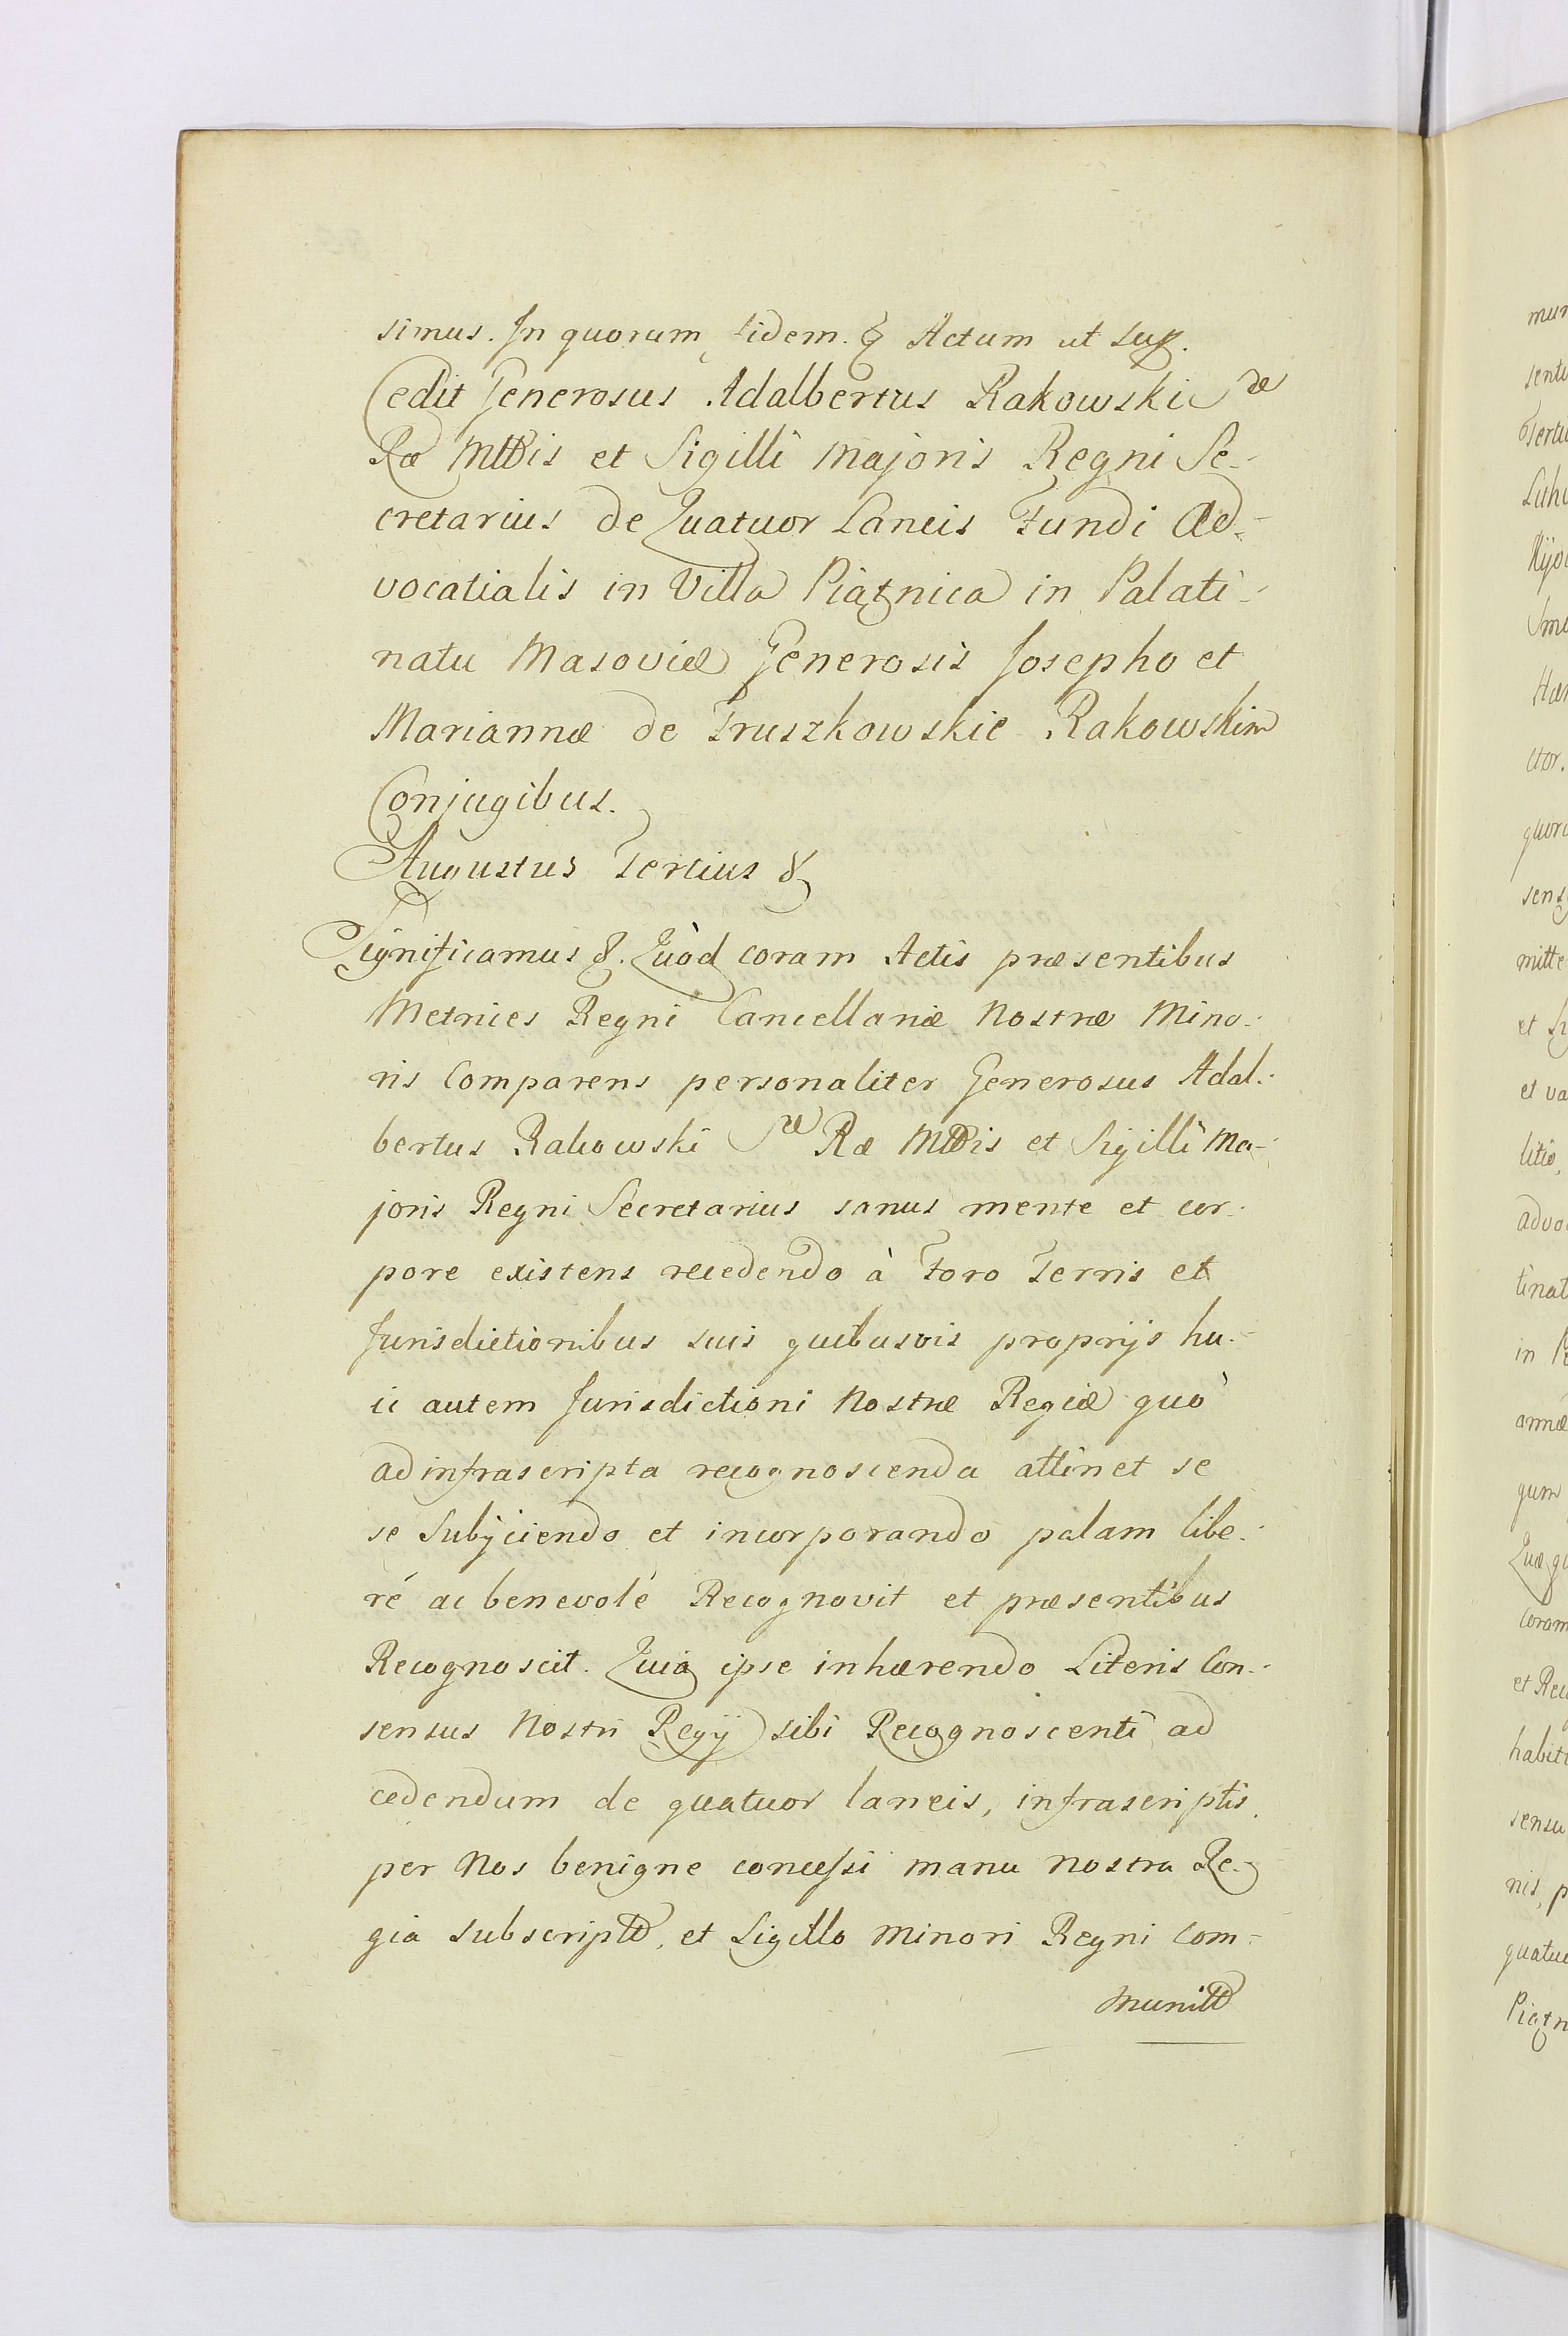 simus. In quorum fidem. & Actum ut sup.
Cedit Generosus Adalbertus Rakowski Sæ
Ræ Mttis et Sigilli Majoris Regni Se-
cretarius de Quatuor Laneis Fundi Ad-
vocatialis in Villa Piątnica in Palati-
natu Masoviæ Generosis Josepho et
Mariannæ de Truszkowskie Rakowskim
Conjugibus.
Augustus Tertius &
Significamus &. Quòd coram Actis præsentibus
Metrices Regni Cancellariæ Nostræ Mino-
ris Comparens personaliter Generosus Adal-
bertus Rakowski Sæ Ræ Mttis et Sigilli Ma-
joris Regni Secretarius sanus mente et cor-
pore existens recedendo à Foro Terris et
Jurisdictionibus suis quibusvis proprijs hu-
ic autem Jurisdictioni Nostræ Regiæ quò
ad infrascripta recognoscenda attinet se
se Subijciendo et incorporando palam libe-
ré ac benevolé Recognovit et præsentibus
Recognoscit. Quia ipse inhærendo Literis Con-
sensus Nostri Regij sibi Recognoscenti ad
cedendum de quatuor laneis, infrascriptis
per Nos benigne concessi manu nostra Re-
gia subscriptt, et Sigillo Minori Regni com-
munitt